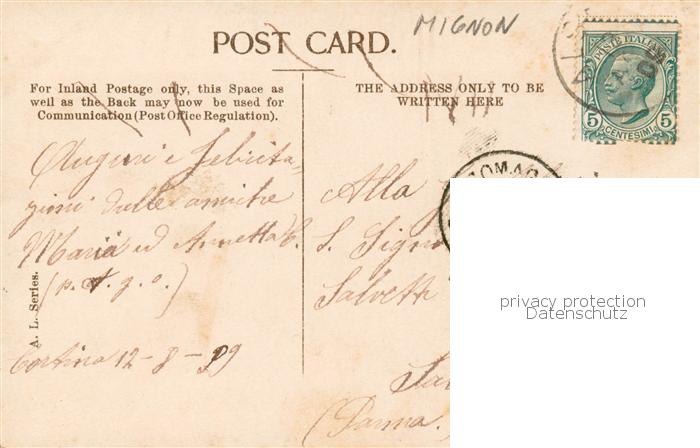 MIGNON
POST CARD.
For Inland Postage only, this Space as
well as the Back may now be used for
Communication (Post Office Regulation).
THE ADDRESS ONLY TO BE
WRITTEN HERE
POSTE ITALIANE
5 5
CENTESIMI
Auguri e felicita-
zioni dalle amiche
Maria ed Annetta C.
(p. t. g. o.)
Cortina 12-8-09
A. L. Series.
Alla
S. Signo
Salvetti
(Parma.
privacy protection
Datenschutz